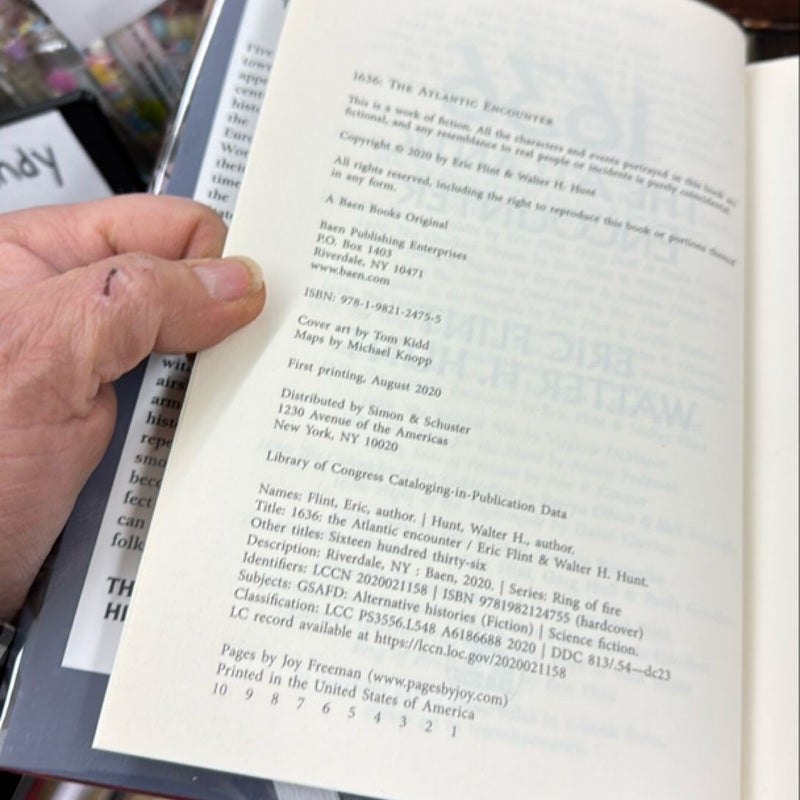 ndy
Five
town
appe
cent
histo
the
Euro
Wor
their
time
the
1636: THE ATLANTIC ENCOUNTER
This is a work of fiction. All the characters and events portrayed in this book are
fictional, and any resemblance to real people or incidents is purely coincidental.
Copyright © 2020 by Eric Flint & Walter H. Hunt
All rights reserved, including the right to reproduce this book or portions thereof
in any form.
A Baen Books Original
Baen Publishing Enterprises
P.O. Box 1403
Riverdale, NY 10471
www.baen.com
ISBN: 978-1-9821-2475-5
Cover art by Tom Kidd
Maps by Michael Knopp
First printing, August 2020
Distributed by Simon & Schuster
1230 Avenue of the Americas
New York, NY 10020
Library of Congress Cataloging-in-Publication Data
Names: Flint, Eric, author. | Hunt, Walter H., author.
Title: 1636: the Atlantic encounter / Eric Flint & Walter H. Hunt.
Other titles: Sixteen hundred thirty-six
Description: Riverdale, NY : Baen, 2020. | Series: Ring of fire
Identifiers: LCCN 2020021158 | ISBN 9781982124755 (hardcover)
Subjects: GSAFD: Alternative histories (Fiction) | Science fiction.
Classification: LCC PS3556.L548 A6186688 2020 | DDC 813/.54—dc23
LC record available at https://lccn.loc.gov/2020021158
Pages by Joy Freeman (www.pagesbyjoy.com)
Printed in the United States of America
10 9 8 7 6 5 4 3 2 1
with
airs
arm
histo
repe
smo
beco
fect
can
folk
TH
HI